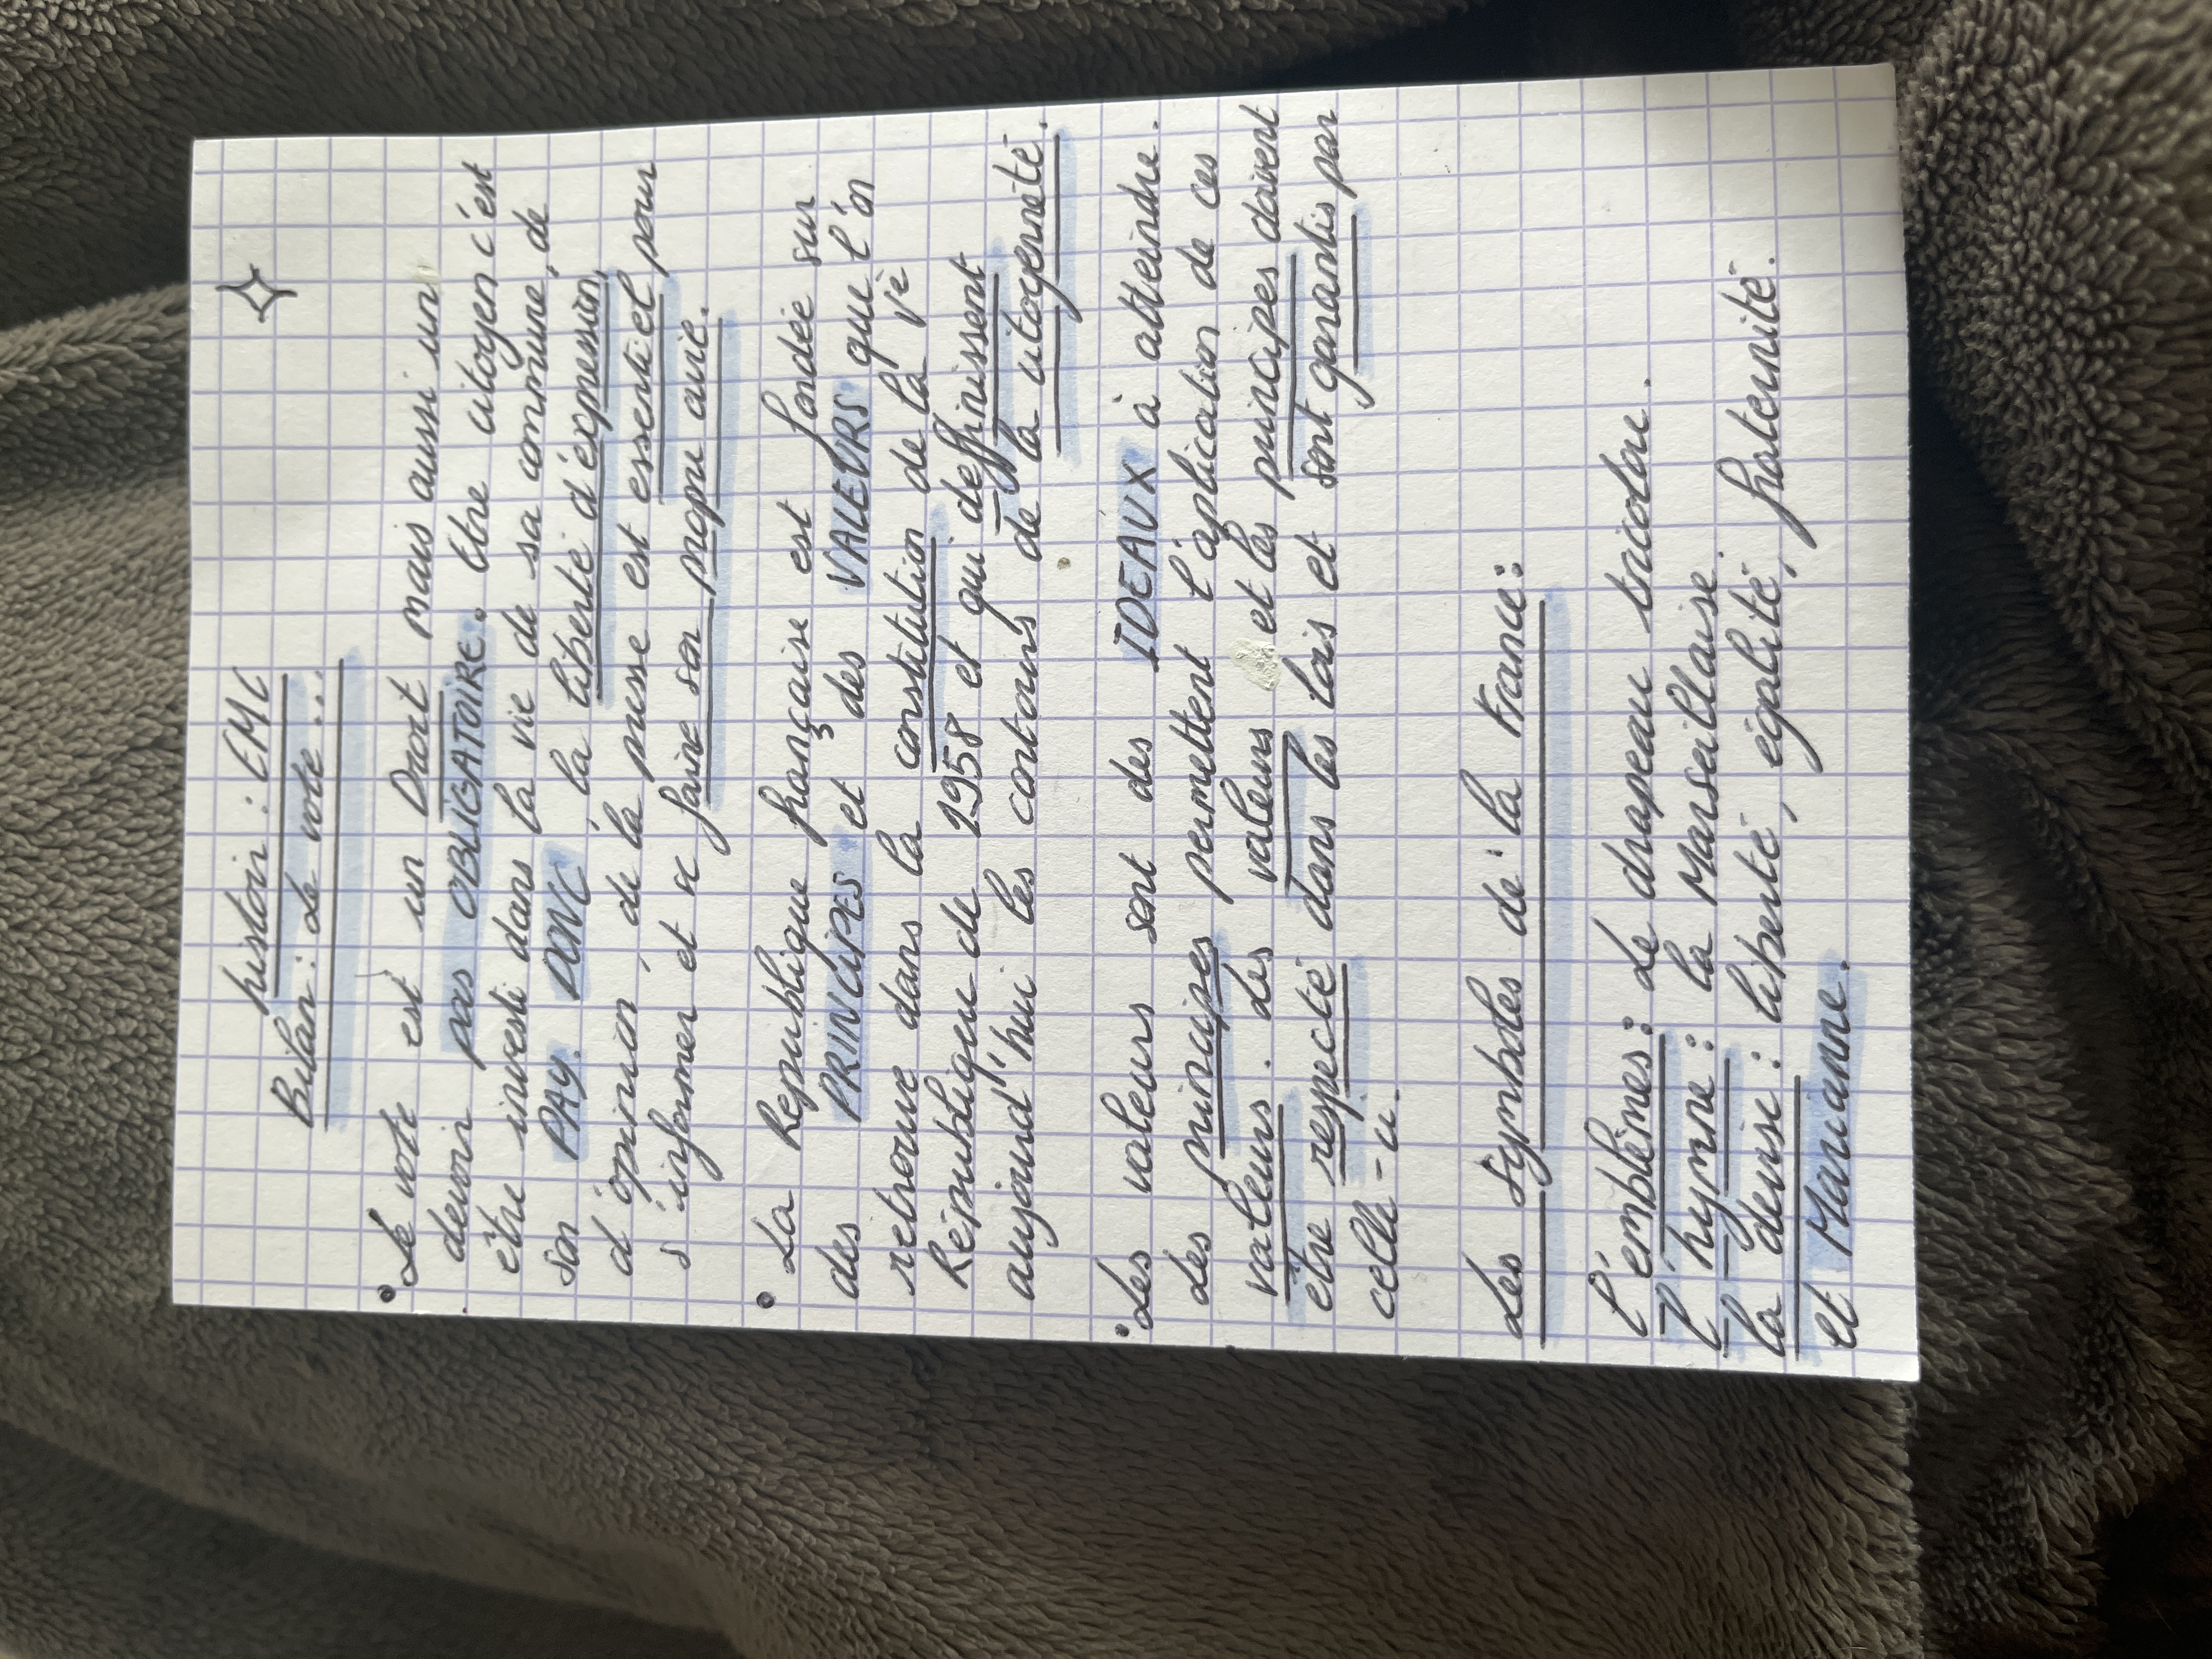 histoir : EMC
Bilan : Le vote ...
• Le vote est un Droit mais aussi un
devoir pas OBLIGATOIRE. Etre citoyen c'est
être investi dans la vie de sa commune, de
son PAY. DONC, la liberté d'éxpression,
d'opinion, de la presse est essentiel pour
s'informer et se faire son propre avie.
• La Republique française est fondée sur
des PRINCIPES et des VALEURS que l'on
retrouve dans la constitution de la Vè
République de 1958 et qui deffinissent
aujourd'hui les contours de la citoyenneté.
• Les valeurs sont des IDEAUX à atteindre.
Les principes permettent l'aplication de ces
valeurs. Les valeurs et les principes doivent
être respecté dans les lois et sont garantis par
celle-ci.
Les symboles de la France :
L'emblêmes : Le drapeau tricolor.
L'hymne : la Marseillaise.
la devise : liberté, égalité, fraternité.
et Marianne.